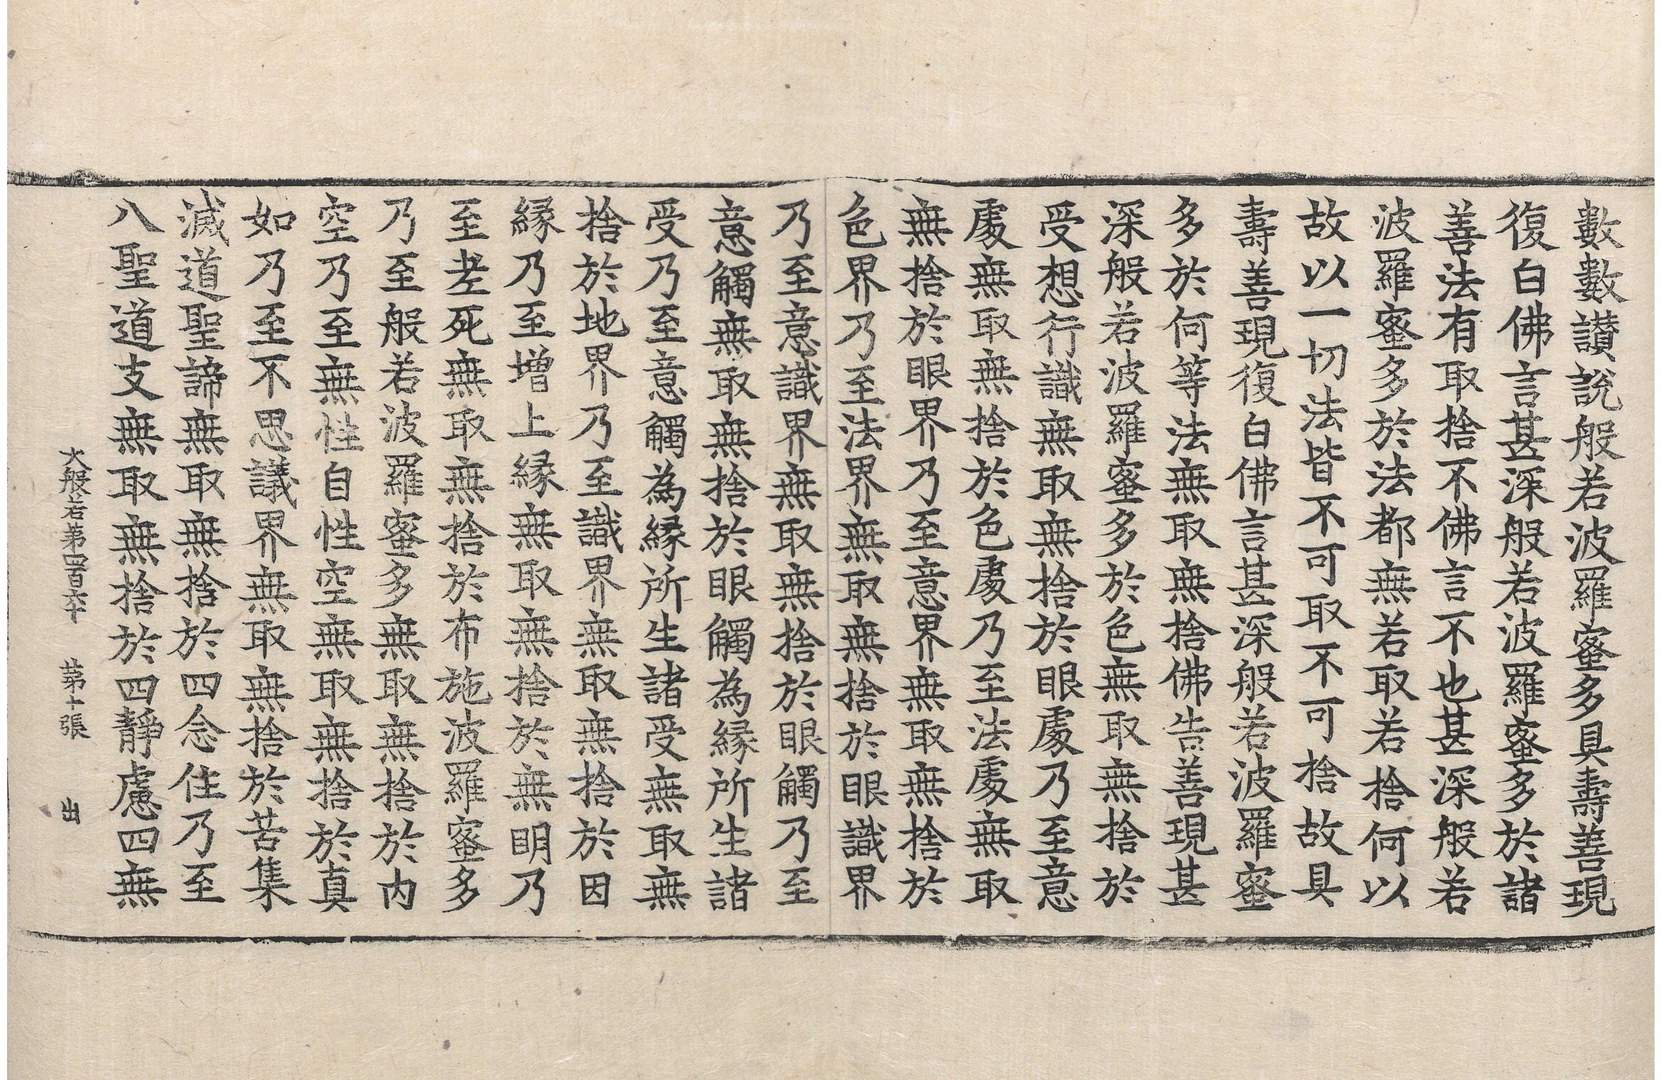 數數讃說般若波羅蜜多具壽善現
復白佛言甚深般若波羅蜜多於諸
善法有取捨不佛言不也甚深般若
波羅蜜多於法都無若取若捨何以
故以一切法皆不可取不可捨故具
壽善現復白佛言甚深般若波羅蜜
多於何等法無取無捨佛告善現甚
深般若波羅蜜多於色無取無捨於
受想行識無取無捨於眼處乃至意
處無取無捨於色處乃至法處無取
無捨於眼界乃至意界無取無捨於
色界乃至法界無取無捨於眼識界
乃至意識界無取無捨於眼觸乃至
意觸無取無捨於眼觸為緣所生諸
受乃至意觸為緣所生諸受無取無
捨於地界乃至識界無取無捨於因
緣乃至增上緣無取無捨於無明乃
至老死無取無捨於布施波羅蜜多
乃至般若波羅蜜多無取無捨於內
空乃至無性自性空無取無捨於真
如乃至不思議界無取無捨於苦集
滅道聖諦無取無捨於四念住乃至
八聖道支無取無捨於四靜慮四無
大般若第四百六十 第十張 出